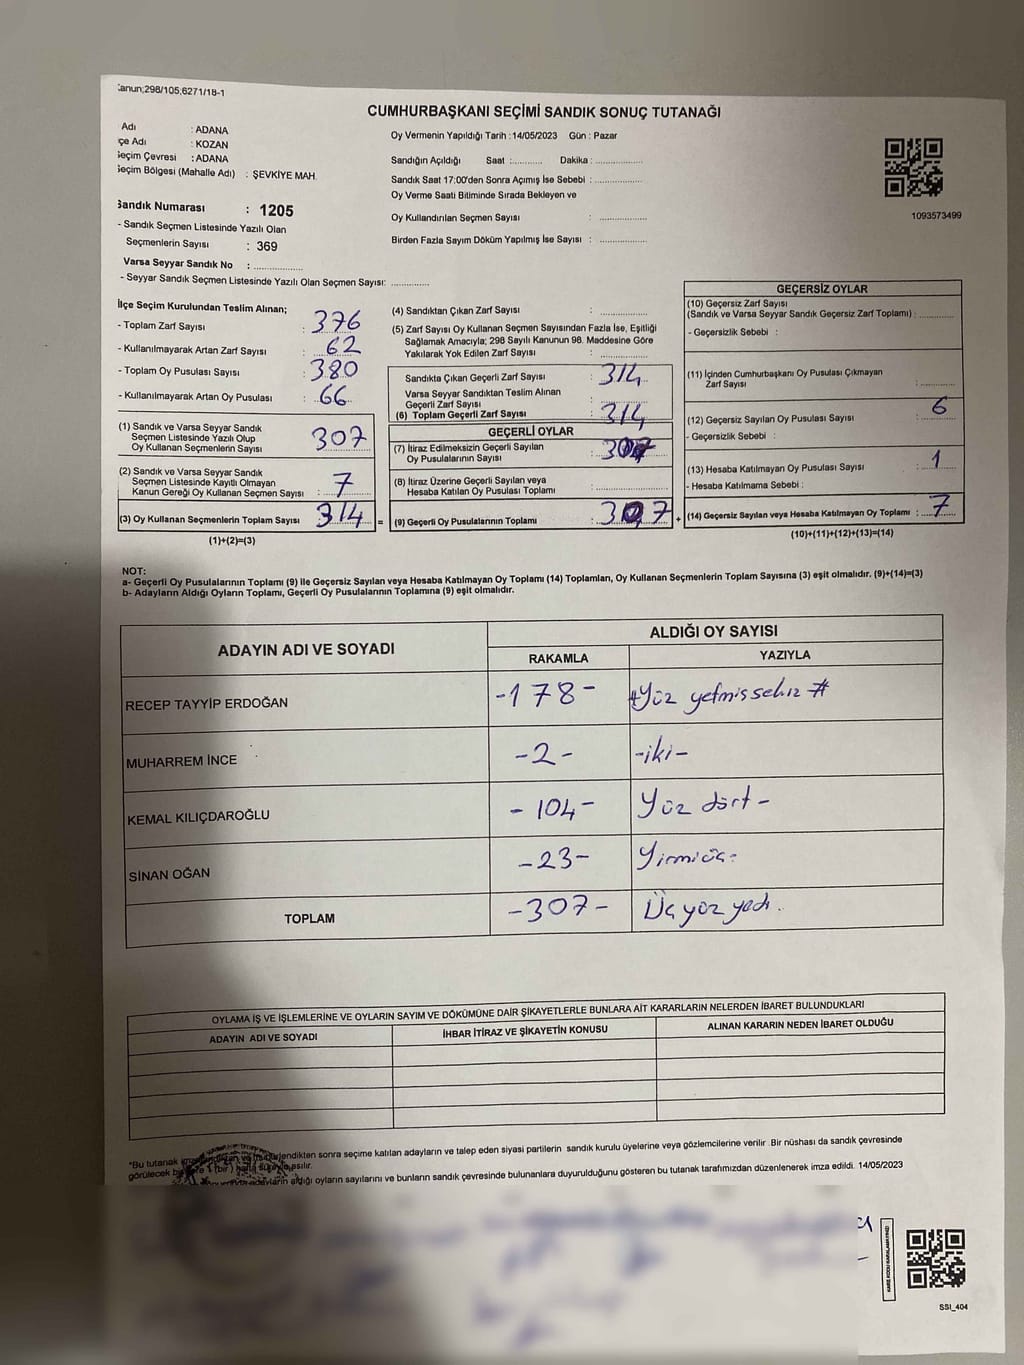 anun;298/105,6271/18-1
CUMHURBAŞKANI SEÇİMİ SANDIK SONUÇ TUTANAĞI
Adı : ADANA
çe Adı : KOZAN
eçim Çevresi : ADANA
eçim Bölgesi (Mahalle Adı) : ŞEVKİYE MAH.
Oy Vermenin Yapıldığı Tarih :14/05/2023 Gün : Pazar
Sandığın Açıldığı Saat :........... Dakika : ................
Sandık Saat 17:00'den Sonra Açımış İse Sebebi : ................
Oy Verme Saati Bitiminde Sırada Bekleyen ve
Oy Kullandırılan Seçmen Sayısı : ................
Birden Fazla Sayım Döküm Yapılmış İse Sayısı : ................
1093573499
Sandık Numarası : 1205
- Sandık Seçmen Listesinde Yazılı Olan
Seçmenlerin Sayısı : 369
Varsa Seyyar Sandık No : ................
- Seyyar Sandık Seçmen Listesinde Yazılı Olan Seçmen Sayısı: .............
İlçe Seçim Kurulundan Teslim Alınan;
- Toplam Zarf Sayısı : 376
- Kullanılmayarak Artan Zarf Sayısı : 62
- Toplam Oy Pusulası Sayısı : 380
- Kullanılmayarak Artan Oy Pusulası : 66
(1) Sandık ve Varsa Seyyar Sandık
Seçmen Listesinde Yazılı Olup
Oy Kullanan Seçmenlerin Sayısı : 307
(2) Sandık ve Varsa Seyyar Sandık
Seçmen Listesinde Kayıtlı Olmayan
Kanun Gereği Oy Kullanan Seçmen Sayısı : 7
(3) Oy Kullanan Seçmenlerin Toplam Sayısı : 314 =
(1)+(2)=(3)
(4) Sandıktan Çıkan Zarf Sayısı : ................
(5) Zarf Sayısı Oy Kullanan Seçmen Sayısından Fazla İse, Eşitliği
Sağlamak Amacıyla; 298 Sayılı Kanunun 98. Maddesine Göre
Yakılarak Yok Edilen Zarf Sayısı : ................
Sandıkta Çıkan Geçerli Zarf Sayısı : 314
Varsa Seyyar Sandıktan Teslim Alınan
Geçerli Zarf Sayısı :
(6) Toplam Geçerli Zarf Sayısı : 314
GEÇERLİ OYLAR
(7) İtiraz Edilmeksizin Geçerli Sayılan
Oy Pusulalarının Sayısı : 307
(8) İtiraz Üzerine Geçerli Sayılan veya
Hesaba Katılan Oy Pusulası Toplamı : ................
(9) Geçerli Oy Pusulalarının Toplamı : 307 +
GEÇERSİZ OYLAR
(10) Geçersiz Zarf Sayısı
(Sandık ve Varsa Seyyar Sandık Geçersiz Zarf Toplamı) : ...........
- Geçersizlik Sebebi :
(11) İçinden Cumhurbaşkanı Oy Pusulası Çıkmayan
Zarf Sayısı : ...........
(12) Geçersiz Sayılan Oy Pusulası Sayısı : 6
- Geçersizlik Sebebi :
(13) Hesaba Katılmayan Oy Pusulası Sayısı : 1
- Hesaba Katılmama Sebebi :
(14) Geçersiz Sayılan veya Hesaba Katılmayan Oy Toplamı : 7
(10)+(11)+(12)+(13)=(14)
NOT:
a- Geçerli Oy Pusulalarının Toplamı (9) ile Geçersiz Sayılan veya Hesaba Katılmayan Oy Toplamı (14) Toplamları, Oy Kullanan Seçmenlerin Toplam Sayısına (3) eşit olmalıdır. (9)+(14)=(3)
b- Adayların Aldığı Oyların Toplamı, Geçerli Oy Pusulalarının Toplamına (9) eşit olmalıdır.
ADAYIN ADI VE SOYADI ALDIĞI OY SAYISI
RAKAMLA YAZIYLA
RECEP TAYYİP ERDOĞAN -178- #Yüz yetmiş sekiz #
MUHARREM İNCE -2- -iki-
KEMAL KILIÇDAROĞLU -104- Yüz dört-
SİNAN OĞAN -23- Yirmiüç-
TOPLAM -307- Üç yüz yedi.
OYLAMA İŞ VE İŞLEMLERİNE VE OYLARIN SAYIM VE DÖKÜMÜNE DAİR ŞİKAYETLERLE BUNLARA AİT KARARLARIN NELERDEN İBARET BULUNDUKLARI
ADAYIN ADI VE SOYADI İHBAR İTİRAZ VE ŞİKAYETİN KONUSU ALINAN KARARIN NEDEN İBARET OLDUĞU
*Bu tutanak sonra seçime katılan adayların ve talep eden siyasi partilerin sandık kurulu üyelerine veya gözlemcilerine verilir .Bir nüshası da sandık çevresinde
görülecek asılır.
aldığı oyların sayılarını ve bunların sandık çevresinde bulunanlara duyurulduğunu gösteren bu tutanak tarafımızdan düzenlenerek imza edildi. 14/05/2023
SSI_404